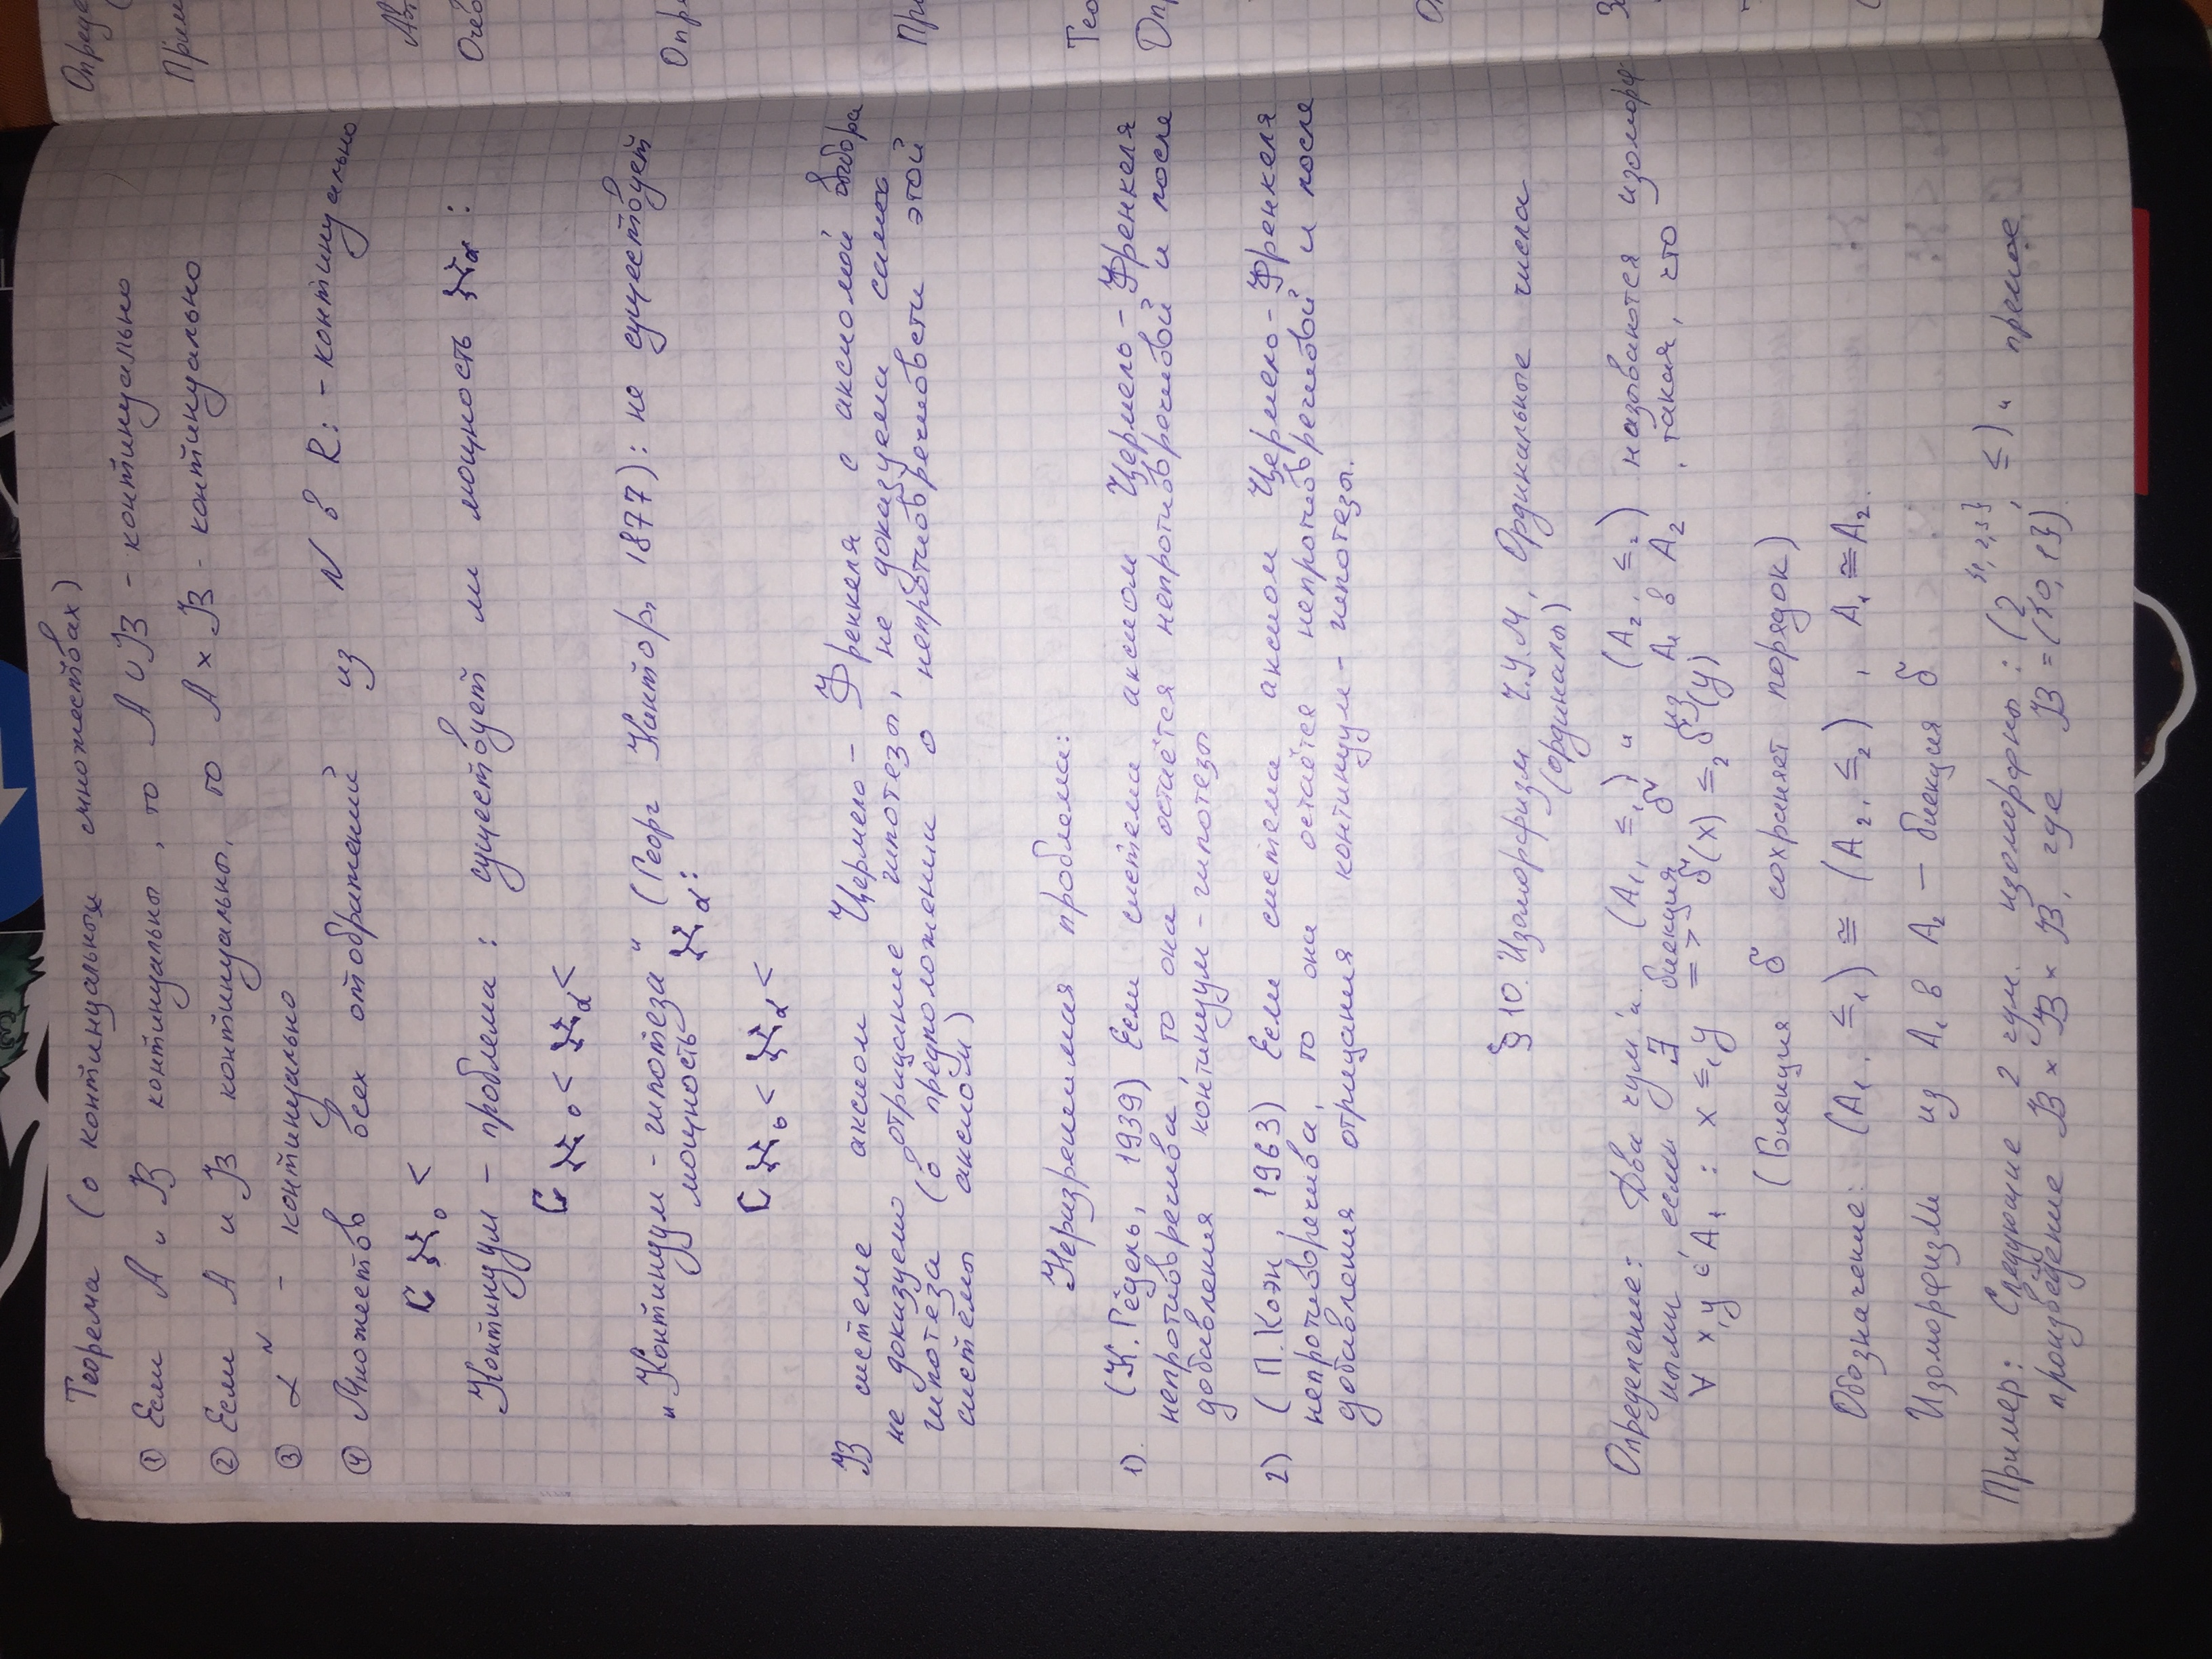 Теорема (о континуальных множествах)
① Если A и B континуальны, то A ∪ B - континуально
② Если A и B континуальны, то A × B - континуально
③ 2^N - континуально
④ Множество всех отображений из N в R: - континуально
C ℵ₀ <
Континуум - проблема: существует ли мощность ℵα:
C ℵ₀ < ℵα <
„Континуум - гипотеза" (Георг Кантор, 1877): не существует
мощность ℵα:
C ℵ₀ < ℵα <
В системе аксиом Цермело - Френкеля с аксиомой выбора
не доказуемо отрицание гипотезы, не доказуема сама
гипотеза (в предположении о непротиворечивости этой
системы аксиом)
Неразрешимая проблема:
1). (К. Гёдель, 1939) Если система аксиом Цермело - Френкеля
непротиворечива, то она остаётся непротиворечивой и после
добавления континуум - гипотезы
2) (П. Коэн, 1963) Если система аксиом Цермело - Френкеля
непротиворечива, то она остаётся непротиворечивой и после
добавления отрицания континуум - гипотезы.
§ 10. Изоморфизм Ч.У.М, Ординальные числа
(ординалы)
Определение: Два чум'а (A₁, ≤₁) и (A₂, ≤₂) называются изоморф-
ными, если ∃ биекция б из A₁ в A₂, такая, что
∀ x,y ∈ A₁ : x ≤₁ y => б(x) ≤₂ б(y)
(Биекция б сохраняет порядок)
Обозначение: (A₁, ≤₁) ≅ (A₂, ≤₂), A₁ ≅ A₂.
Изоморфизм из A₁ в A₂ — биекция б
Пример: Следующие 2 чум. изоморфны: (2^{1,2,3}, ≤) и прямое
произведение B × B × B, где B = ({0,1})
Опреде
Прим
Очев
Опре
При
Тео
Опр